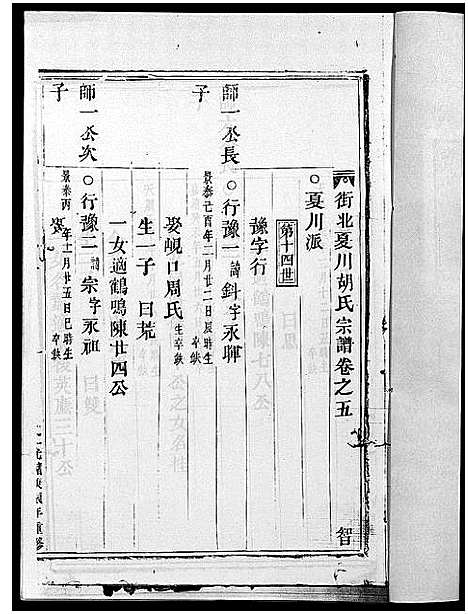 街北夏川胡氏宗譜卷之五
智
○夏川派
第十四世
豫字行
師一公長
子
○行豫一諱鈄字永暉
景泰己酉年二月廿二日辰時生卒缺
娶峴口周氏生卒缺
生一子曰荒
一女適鶴鳴陳廿四公
師一公次
子
○行豫二諱宗字永祖
景泰丙年十一月廿五日巳時生卒缺